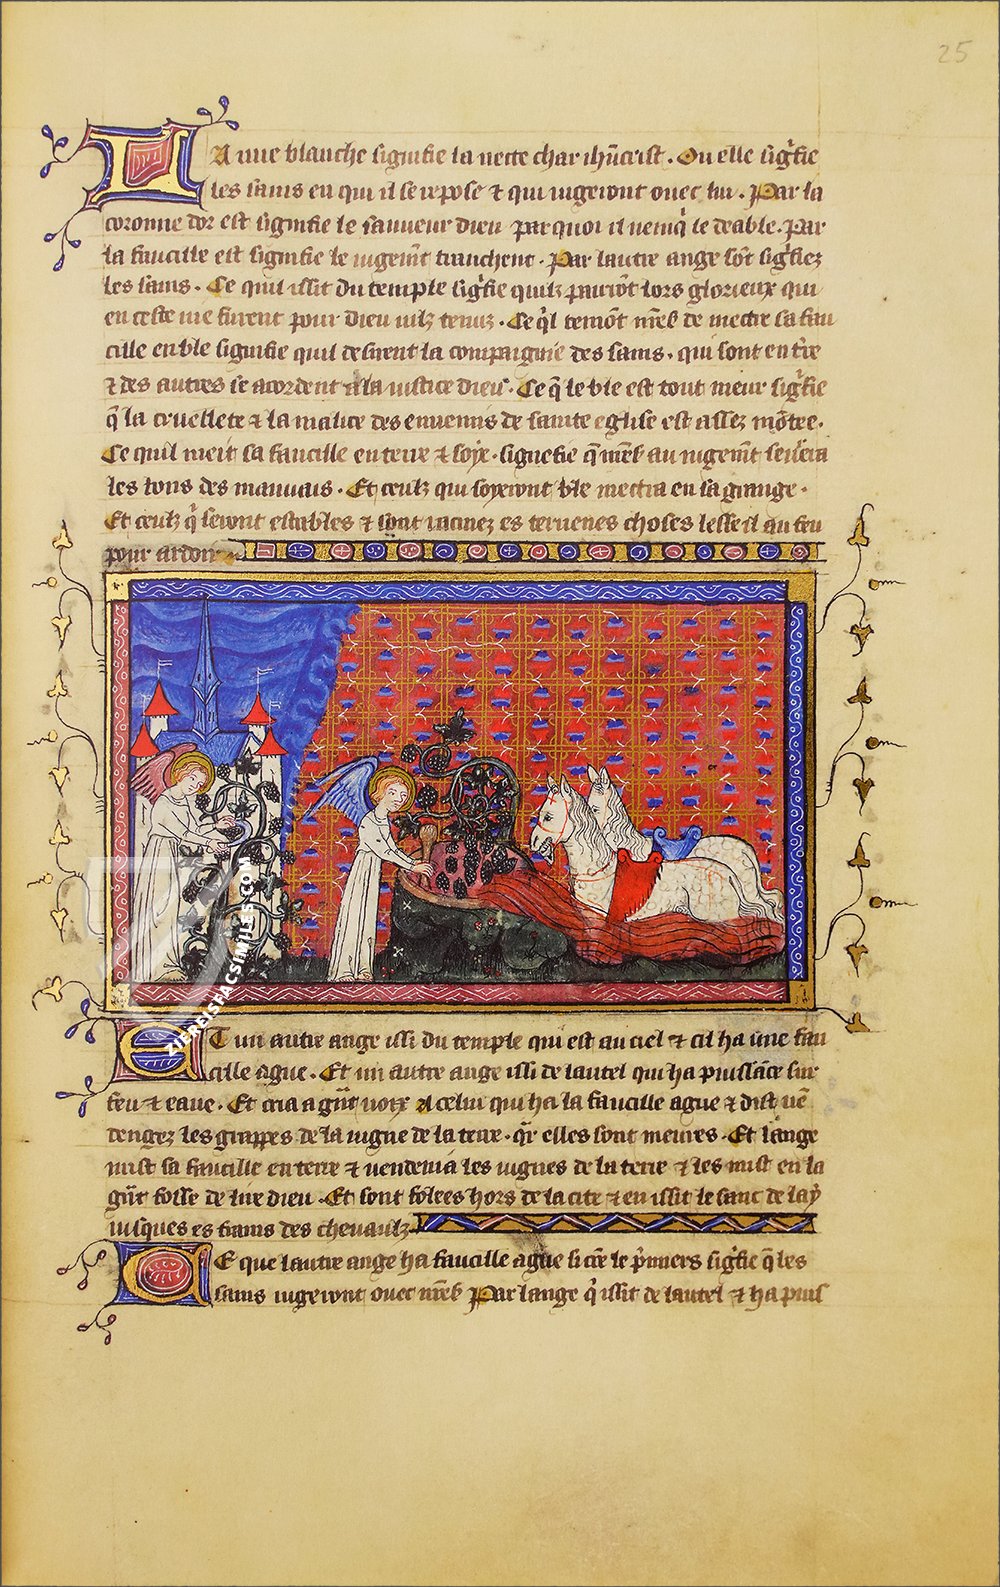 25
LA nue blanche signifie la nette char ihūcrist. Ou elle sigᷤfie
les sains en qui il se repose ⁊ qui iugeront ouec lui. Par la
coronne dor est signifie le sauueur dieu par quoi il uenq̍ le deable. Par
la faucille est signifie le iugem̄t trenchent. Par lautre ange sōt sigᷤfiez
les sains. Ce quil issit du temple sigᷤfie quilz parrōt lors glorieux qui
en ceste uie furent pour dieu uilz tenuz. Ce q̍l temōt nr̄e de mectre sa fau
cille en ble signifie quil desirent la compaignie des sains. qui sont en tr̄e
⁊ des autres se acordent a la iustice dieu. Ce q̄ le ble est tout meur sigᷤfie
q̄ la cruellete ⁊ la malice des ennemis de sainte eglise est assez mōtee.
Ce quil meit sa faucille en terre ⁊ soye. signefie q̄ au iugem̄t
les bons des mauuais. Et ceulz qui soyeront ble mectra en sa grange.
Et ceulz q̍ seront estables ⁊ sont racinez es terrienes choses lesse il au feu
pour ardoir
ET un autre ange issi du temple qui est au ciel ⁊ cil ha une fau
cille ague. Et un autre ange issi de lautel qui ha puissāce sur
feu ⁊ eaue. Et cria a grāt uoix A celui qui ha la faucille ague ⁊ dist uē
dengez les grappes de la uigne de la terre. q̄r elles sont meures. Et lānge
mist sa faucille en terre ⁊ uendenia les uignes de la terre ⁊ les mist en la
grāt fosse de lire dieu. Et sont folees hors de la cite ⁊ en issit le sanc de
iusques es frains des cheuaulz
CE que lautre ange ha faucille ague si cōe le p̍miers sigᷤfie q̄ les
sains iugeront ouec Par lange q̍ issit de lautel ⁊ ha puis
ZIEREISFACSIMILES.COM